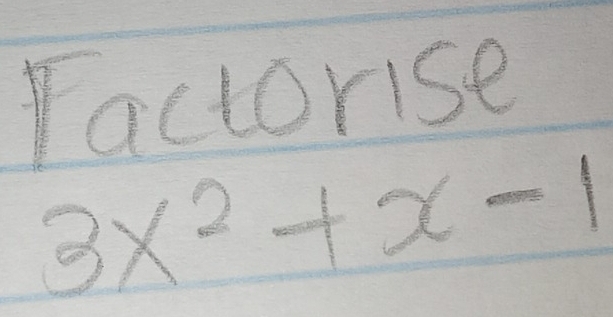 Factorise
3x² + x - 1